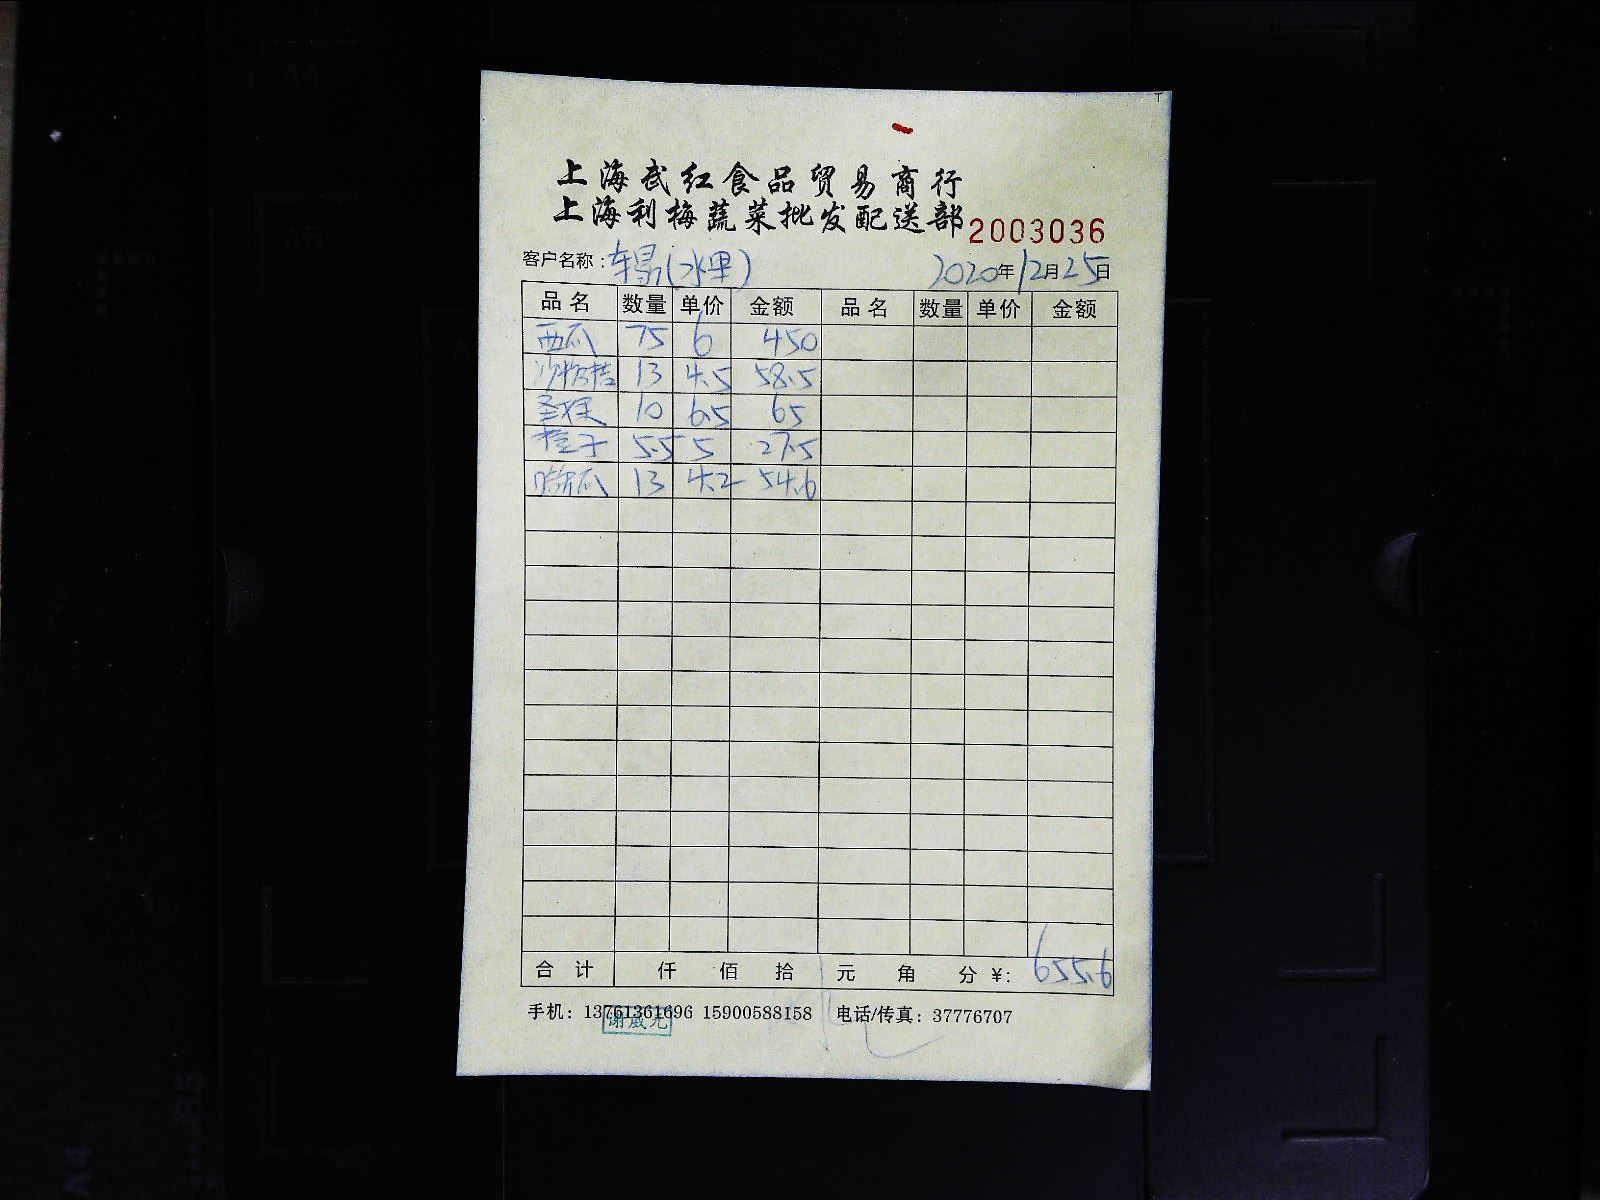 上海武红食品贸易商行
上海利梅蔬菜批发配送部 2003036
客户名称：车易(水果) 2020年12月25日
品名 数量 单价 金额 品名 数量 单价 金额
西瓜 75 6 450
沙糖桔 13 4.5 58.5
圣女果 10 6.5 65
橙子 5.5 5 27.5
哈密瓜 13 4.2 54.6
合计 仟 佰 拾 元 角 分 ¥: 655.6
手机：13761361696 15900588158 电话/传真：37776707
A4
A5
A4
B5